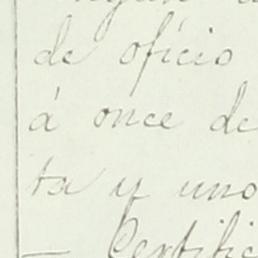 de oficio
á once de
ta y uno
— Certific